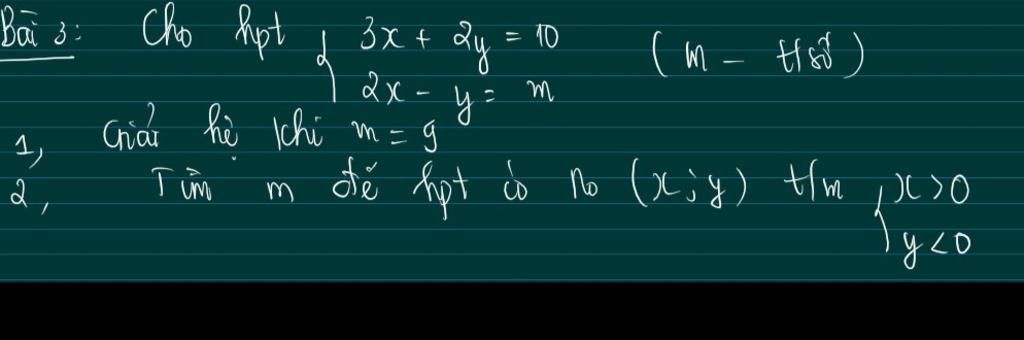 Bài 3: Cho hpt { 3x + 2y = 10 (m - t/số)
2x - y = m
1, Giải hệ khi m = 9
2, Tìm m để hpt có no (x; y) t/m { x > 0
y < 0